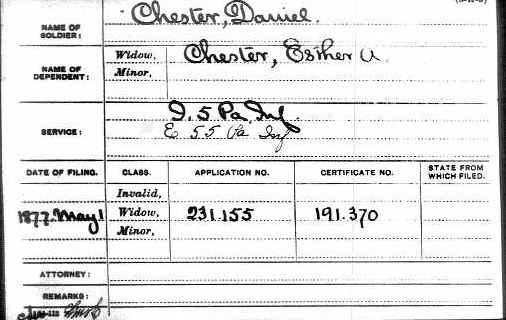 NAME OF SOLDIER: Chester, Daniel.
NAME OF DEPENDENT: Widow, Chester, Esther A.
Minor,
SERVICE: I. 5 Pa. Inf
E 55 Pa Inf
DATE OF FILING. CLASS. APPLICATION NO. CERTIFICATE NO. STATE FROM WHICH FILED.
Invalid,
1877. May 1 Widow, 231.155 191.370
Minor,
ATTORNEY:
REMARKS: